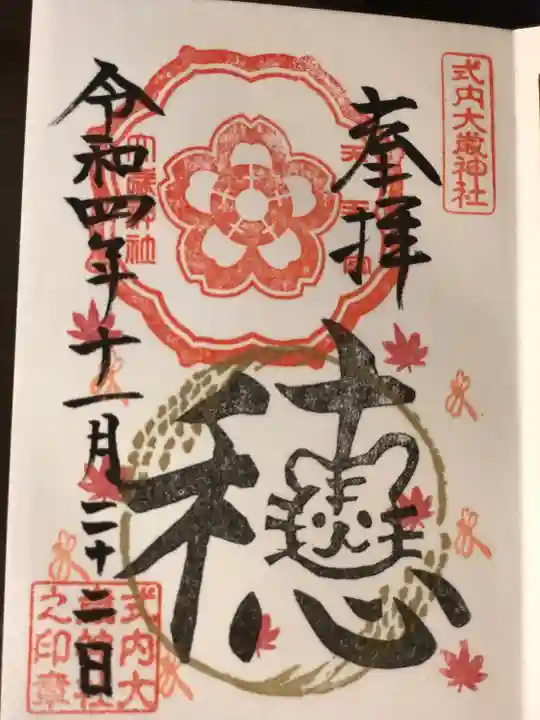 式内大嶽神社
奉拝
穂
令和四年十一月二十二日
式内大
嶽神社
之印章